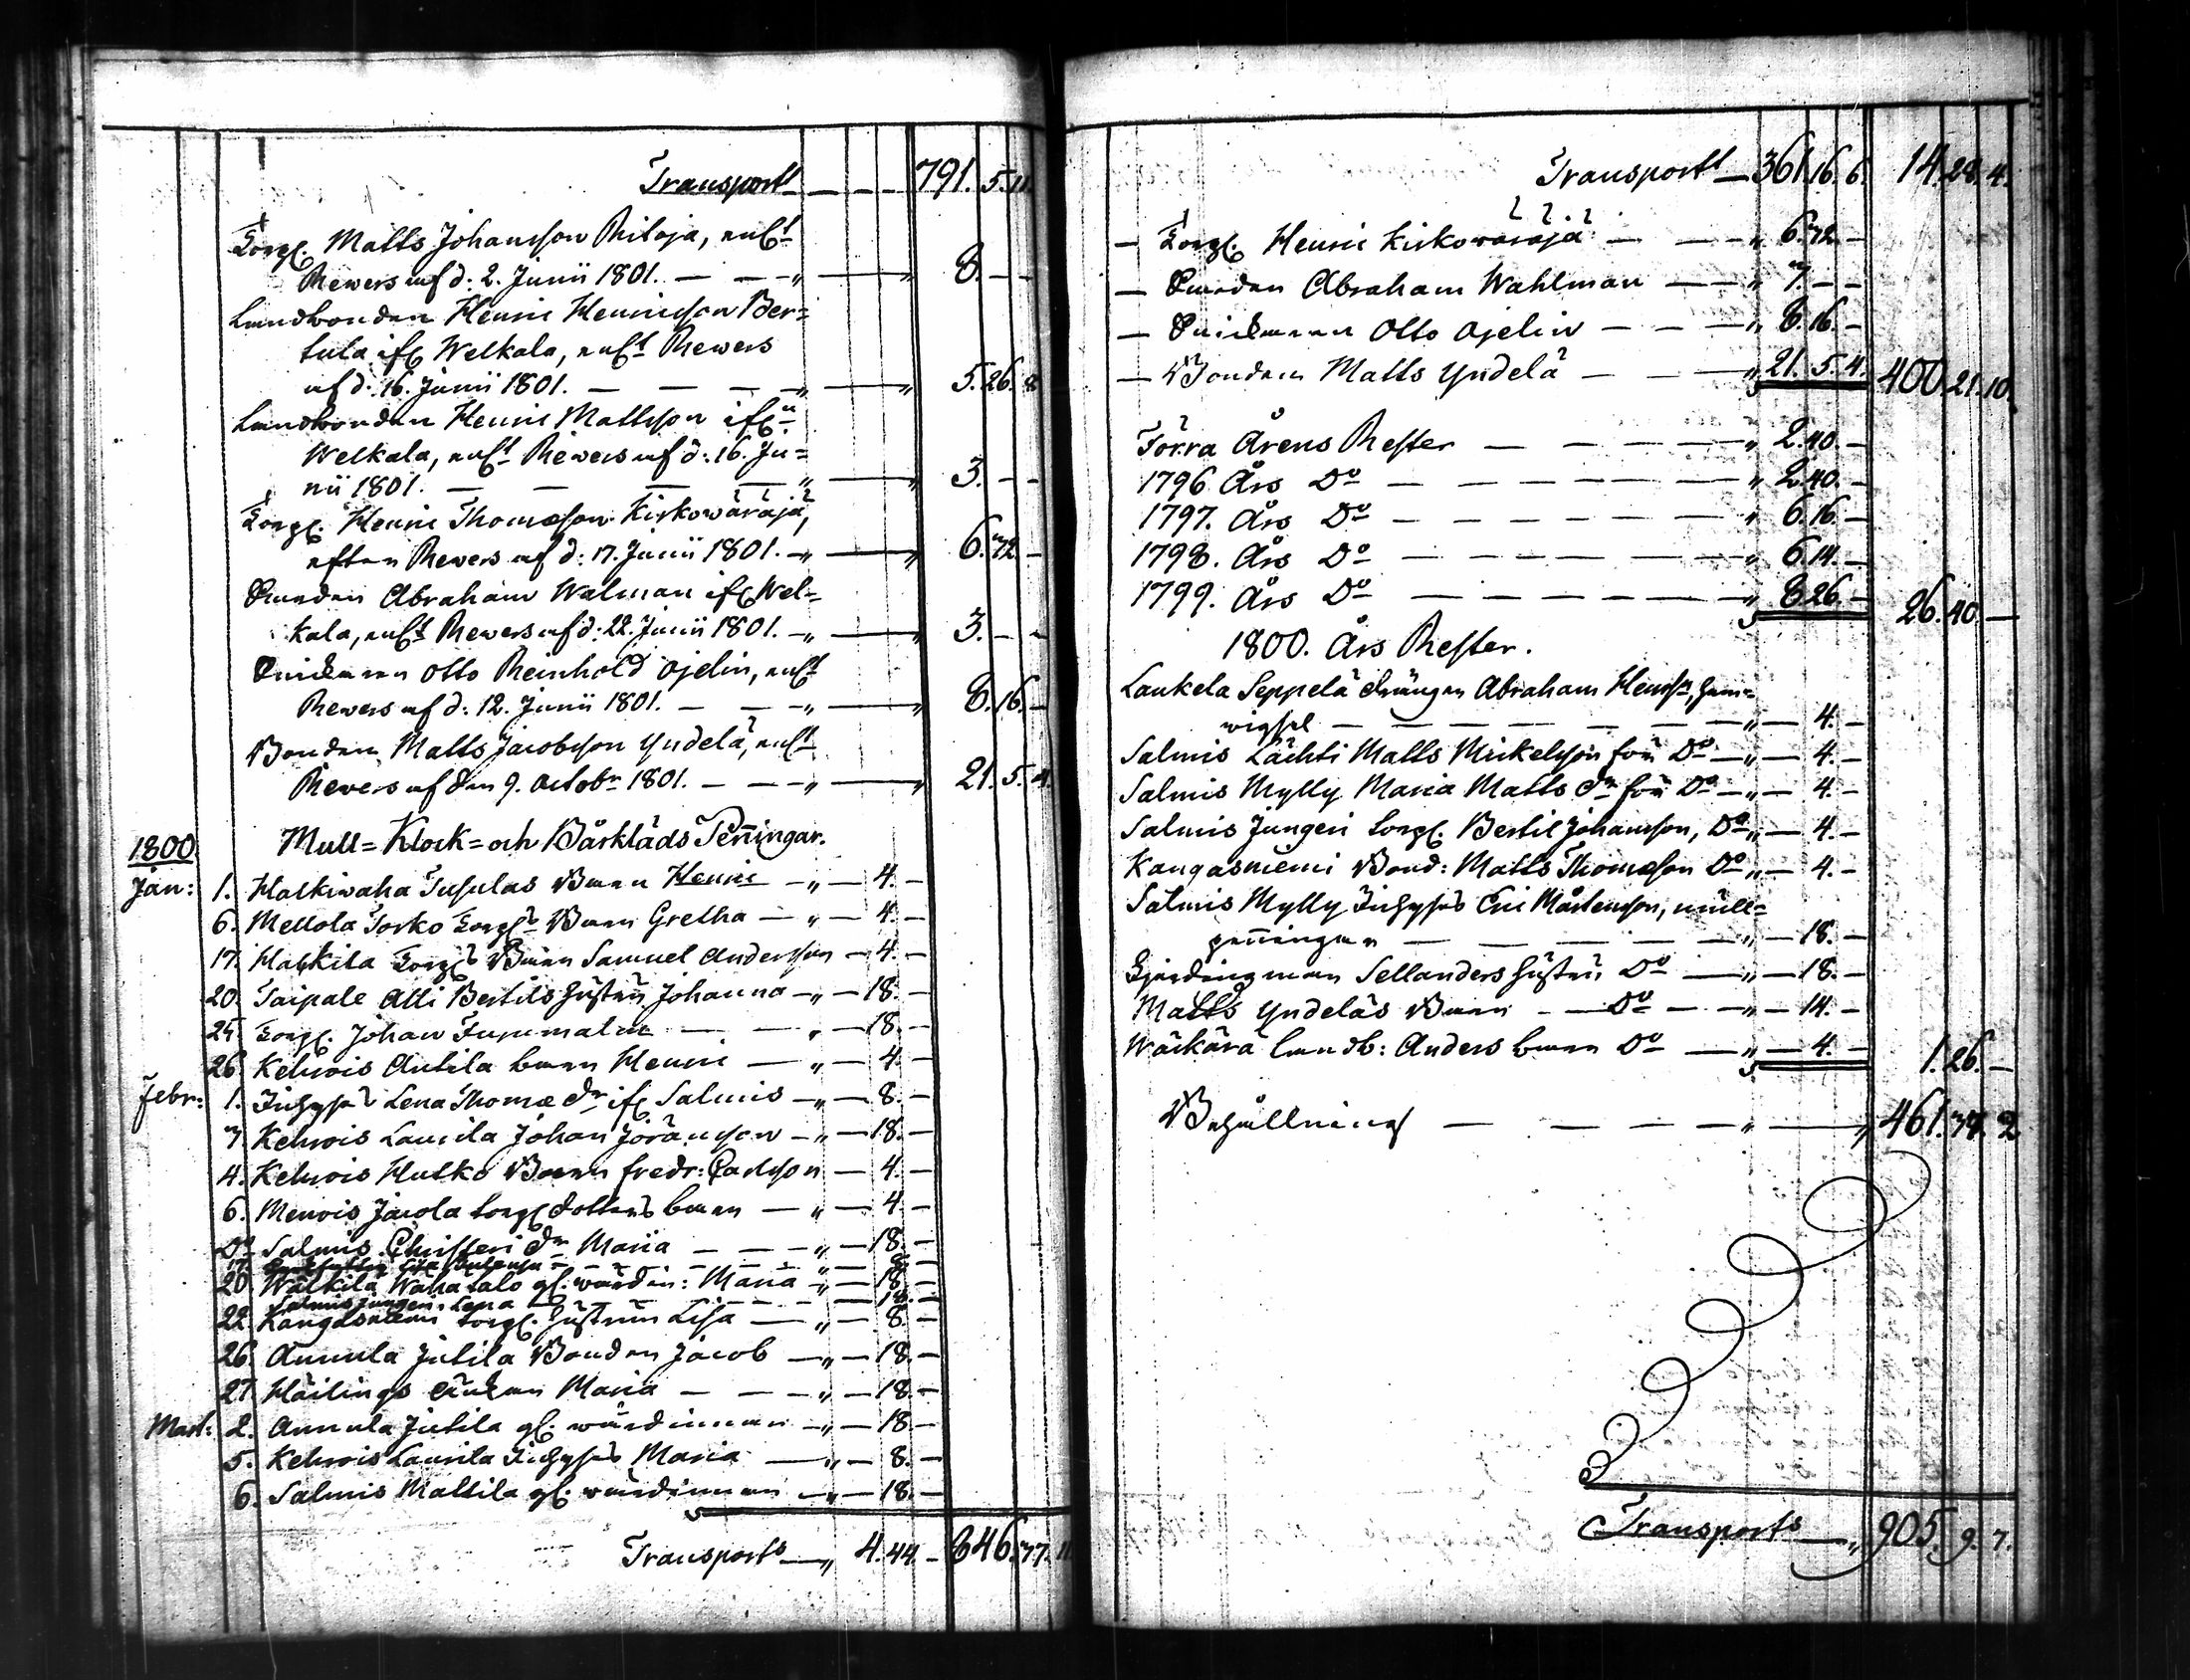 Transport — — — 791. 5. 11.
Torp. Matts Johansson Ritoja, enl.t
Revers af d: 2. Junii 1801. — — „ — „ 8. — —
Landbonden Henric Henricsson Ber=
tula ifr. Welkala, enl.t Revers
af d: 16. Junii 1801. — — — „ — „ 5. 26. 8
Landbonden Henric Mattsson ifr.n
Welkala, enl.t Revers af d: 16. Ju=
nii 1801. — — — — „ — „ 3. — —
Torp. Henric Thomæson Kirkowäräjä,
efter Revers af d: 17. Junii 1801. — „ — „ 6. 72. —
Smeden Abraham Walman ifr. Wel=
kala, enl.t Revers af d: 22. Junii 1801. — „ — „ 3. — —
Snickaren Otto Reinhold Ojelin, enl.t
Revers af d: 12. Junii 1801. — — „ — „ 8. 16. —
Bonden Matts Jacobsson Yndelä, enl.t
Revers af den 9. Octobr 1801. — — „ — „ 21. 5. 4.
1800 Mull= Klock= och Bårkläds Peñingar.
Jan: 1. Haskiwaha Tupulas Barn Henric — „ — 4. —
6. Mellola Torko Torp.s Barn Gretha — „ — 4. —
17. Haskila Torp.s Barn Samuel Andersson — 4. —
20. Taipale Alli Bertils hustru Johanna — „ — 18. —
24. Torp. Johan — — „ — 18. —
26. Kelwois Antila barn Henric — „ — 4. —
Febr: 1. Inhys.s Lena Thomæ dr ifr. Salmis — „ — 8. —
3. Kelwois Laurila Johan Jöransson — „ — 18. —
4. Kelwois Hutko Barn Fredr: Carlsson — 4. —
6. Menois Jacola torp. dotters barn — „ — 4. —
Do Salmis Christeri dr Maria — — — „ — 18. —
17. — — — — „ — 8. —
20 Wälkilä Wahatalo gl. wärdin: Maria — „ — 18. —
Salmis Jungeri Lena — — — — 18. —
22. Kangasniemi torp. hustrun Lisa — „ — 8. —
26. Annula Jutila Bonden Jacob — „ — 18. —
27. Häilings Änkan Maria — — — „ — 18. —
Mart: 2. Annula Jutila gl. wärdinnan — „ — 18. —
5. Kelwois Laurila Inhys.s Maria — „ — 8. —
6. Salmis Mattila gl. wärdinnan — „ — 18. —
Transport — „ 4. 44. — 846. 77. 11
Transport — 361. 16. 6. 14. 28. 4.
— Torp. Henric Kirkowäräjä — — — „ 6. 72. —
— Smeden Abraham Wahlman — — „ 7. — —
— Snickaren Otto Ojelin — — — „ 8. 16. —
— Bonden Matts Yndelä — — — „ 21. 5. 4. 400. 21. 10.
Förra Årens Rester — — — — „ 2. 40. —
1796 Års Do — — — — — — „ 2. 40. —
1797. Års Do — — — — — — „ 6. 16. —
1798. Års Do — — — — — — „ 6. 14. —
1799. Års Do — — — — — — „ 8. 26. — 26. 40. —
1800. Års Rester.
Laukela Seppelä drängen Abraham Henrss.n, hem=
wigsel — — — — — — „ — 4. —
Salmis Lächti Matts Mickelsson för Do — „ — 4. —
Salmis Mylly Maria Matts dr för Do — „ — 4. —
Salmis Jungeri torp. Bertil Johansson, Do „ — 4. —
Kangasniemi Bond: Matts Thomæson Do „ — 4. —
Salmis Mylly Inhyses Eric Mårtensson, mull=
peñingar — — — — — „ — 18. —
Fjerdingsman Sellanders hustru, Do — „ — 18. —
Matts Yndeläs Barn — — Do — — „ — 14. —
Wäckärä landb: Anders barn Do — „ — 4. — 1. 26. —
Behållning — — — — „ — „ 461. 37. 2
Transport — „ 905. 9. 7.